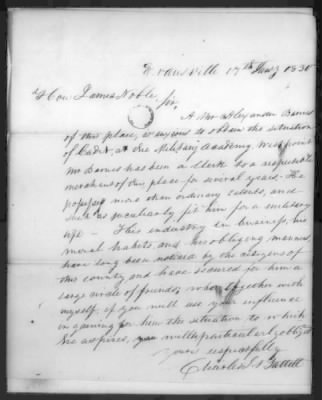 Evansville 17th Jany 1830
Hon. James Noble,
Sir,
A Mr Alexander Barnes
of this place, is anxious to obtain the situation
of Cadet, at the Military Academy, West point
Mr Barnes has been a Clerk to a respectable
merchant of this place for several years - He
possesses more than ordinary talents, and
such as peculiarly fit him for a military
life - His industry in business, his
moral habits, and his obliging manners
have long been noticed by the citizens of
this county and have secured for him a
large circle of friends, who together with
myself, if you will use your influence
in gaining for him the situation to which
he aspires, you will particularly oblige
Yours respectfully
Charles I Battell